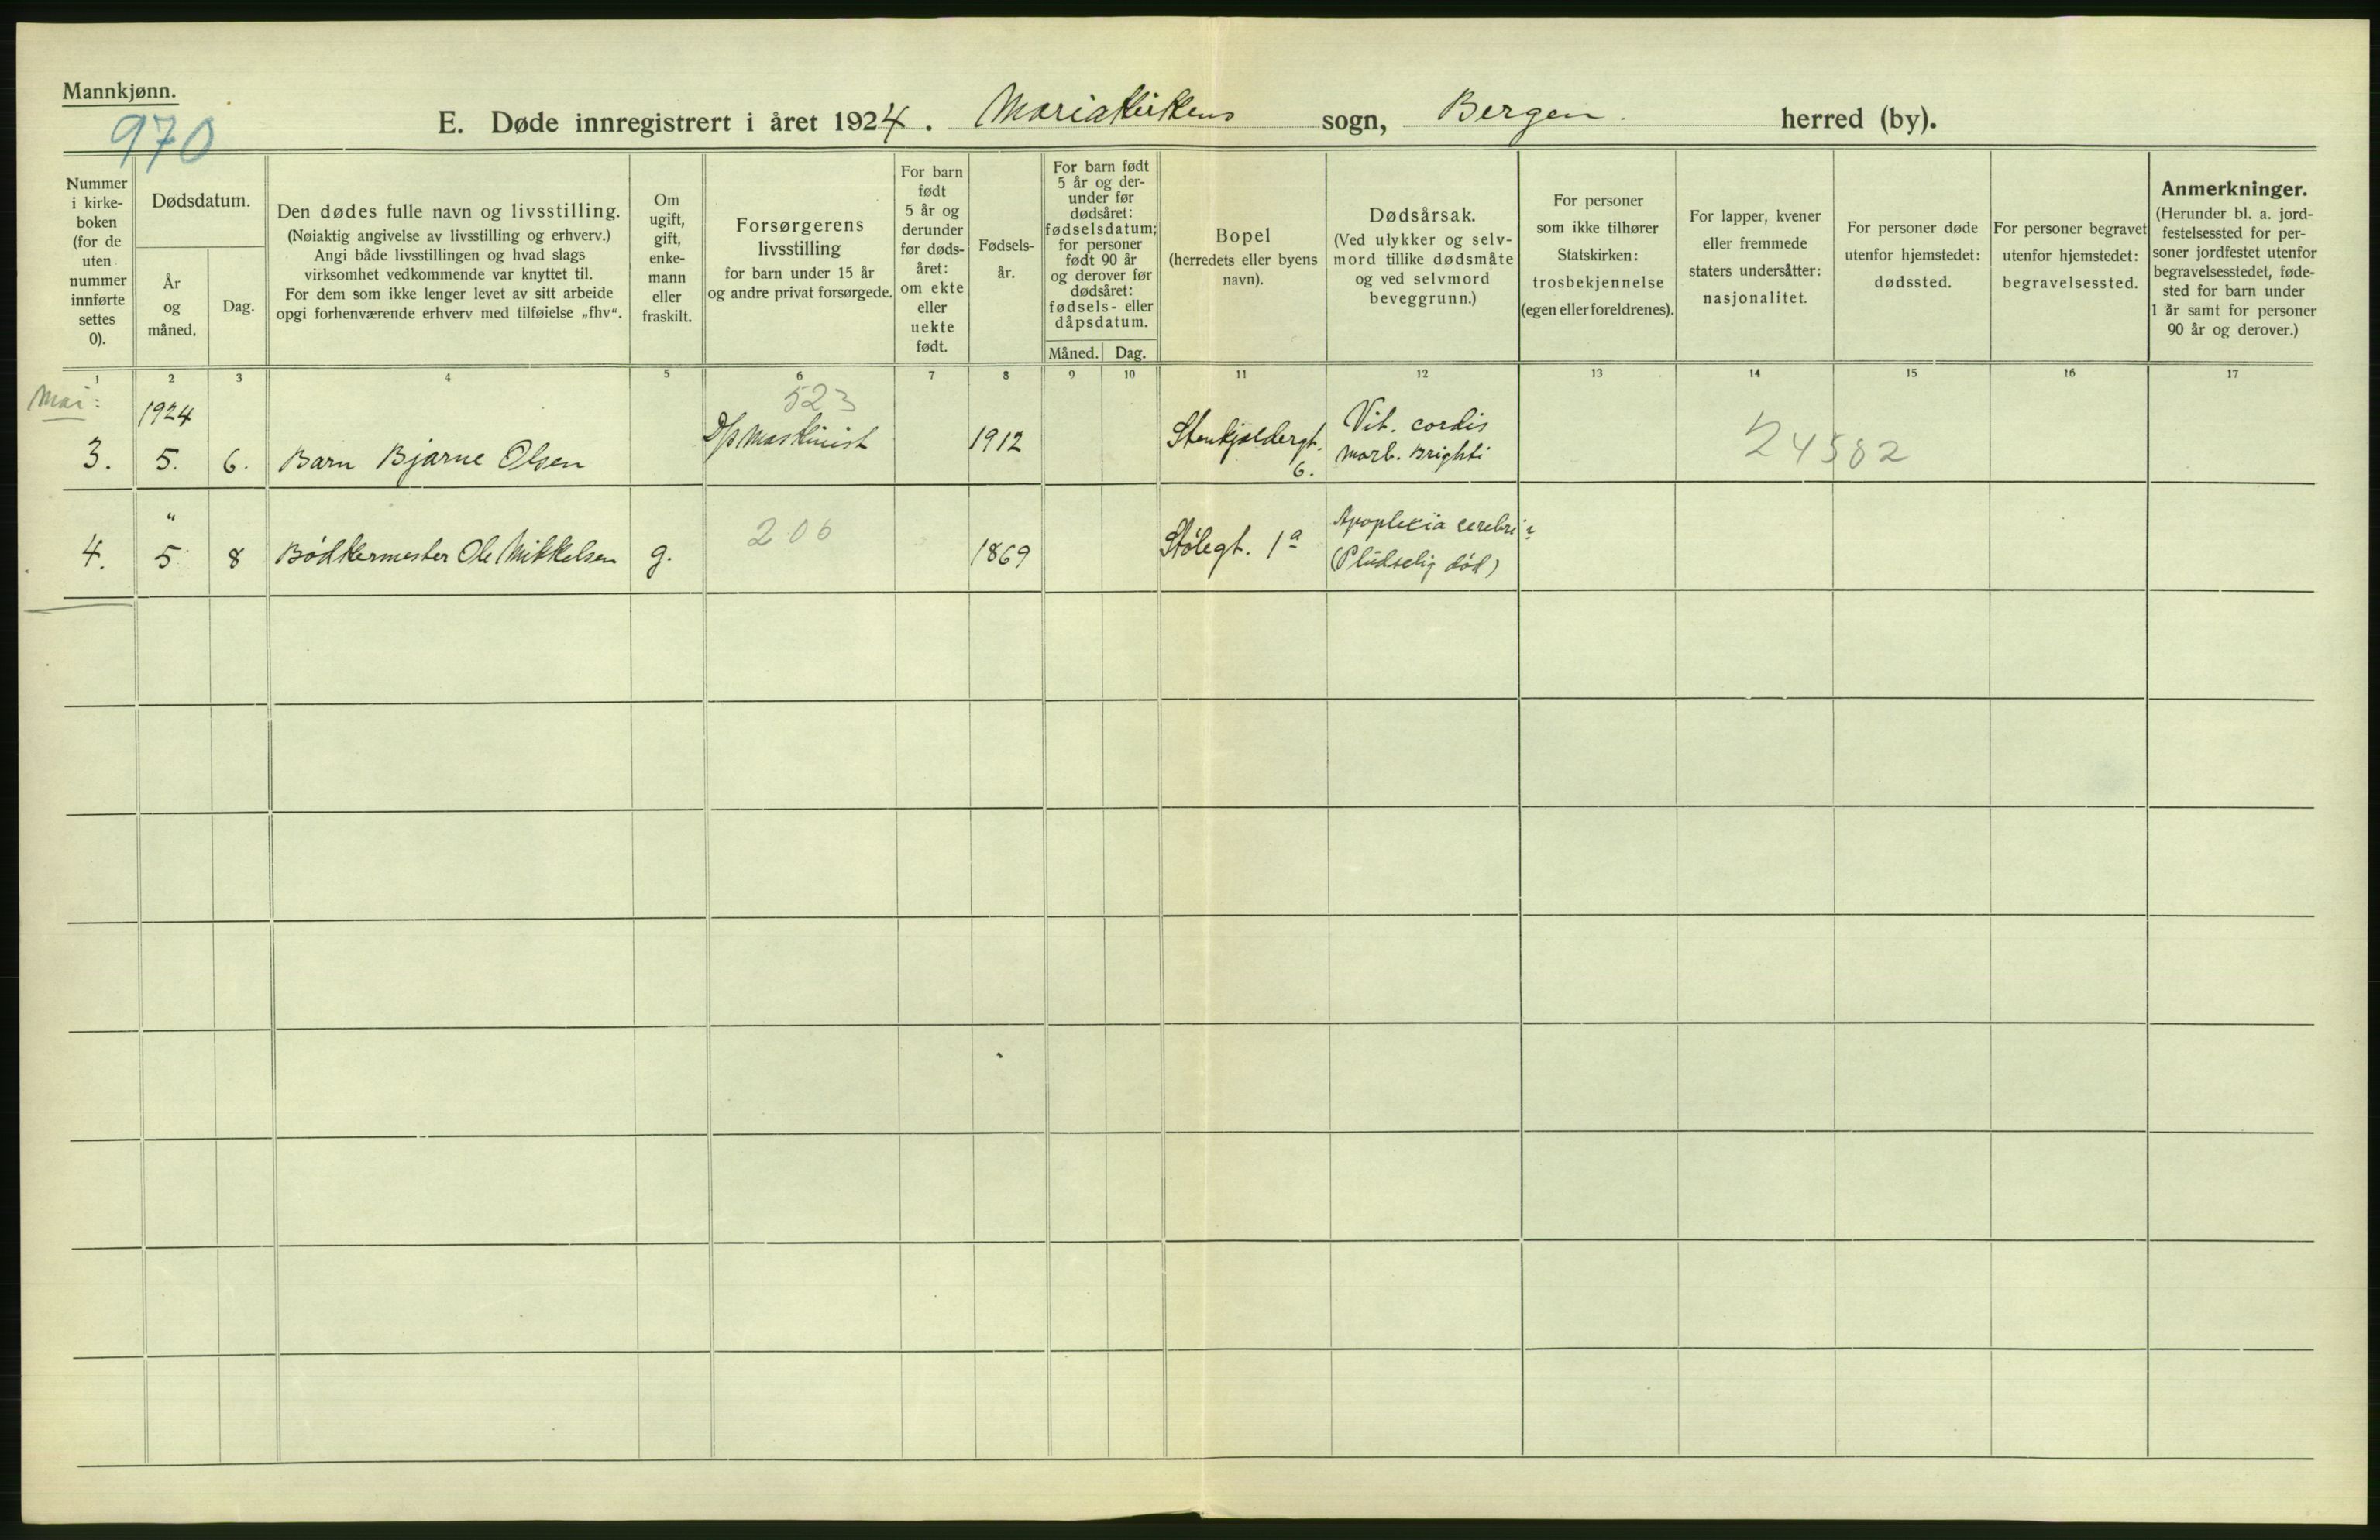 Mannkjønn.
970
E. Døde innregistrert i året 1924. Mariakirkens sogn, Bergen. herred (by).
Nummer
i kirke-
boken
(for de
uten
nummer
innførte
settes
0).
Dødsdatum.
År
og
måned.
Dag.
Den dødes fulle navn og livsstilling.
(Nøiaktig angivelse av livsstilling og erhverv.)
Angi både livsstillingen og hvad slags
virksomhet vedkommende var knyttet til.
For dem som ikke lenger levet av sitt arbeide
opgi forhenværende erhverv med tilføielse „fhv“.
Om
ugift,
gift,
enke-
mann
eller
fraskilt.
Forsørgerens
livsstilling
for barn under 15 år
og andre privat forsørgede.
For barn
født
5 år og
derunder
før døds-
året:
om ekte
eller
uekte
født.
Fødsels-
år.
For barn født
5 år og der-
under før
dødsåret:
fødselsdatum;
for personer
født 90 år
og derover før
dødsåret:
fødsels- eller
dåpsdatum.
Måned. Dag.
Bopel
(herredets eller byens
navn).
Dødsårsak.
(Ved ulykker og selv-
mord tillike dødsmåte
og ved selvmord
beveggrunn.)
For personer
som ikke tilhører
Statskirken:
trosbekjennelse
(egen eller foreldrenes).
For lapper, kvener
eller fremmede
staters undersåtter:
nasjonalitet.
For personer døde
utenfor hjemstedet:
dødssted.
For personer begravet
utenfor hjemstedet:
begravelsessted.
Anmerkninger.
(Herunder bl. a. jord-
festelsessted for per-
soner jordfestet utenfor
begravelsesstedet, føde-
sted for barn under
1 år samt for personer
90 år og derover.)
1 2 3 4 5 6 7 8 9 10 11 12 13 14 15 16 17
Mai:
1924
523
3. 5. 6. Barn Bjarne Olsen D/s Maskinist 1912 Stenkjeldergt. 6. Vit. cordis
Morb. Brighti
24582
"
4. 5 8 Bødkermester Ole Mikkelsen g. 206 1869 Stølegt. 1a Apoplexia cerebri?
(Pludselig død)